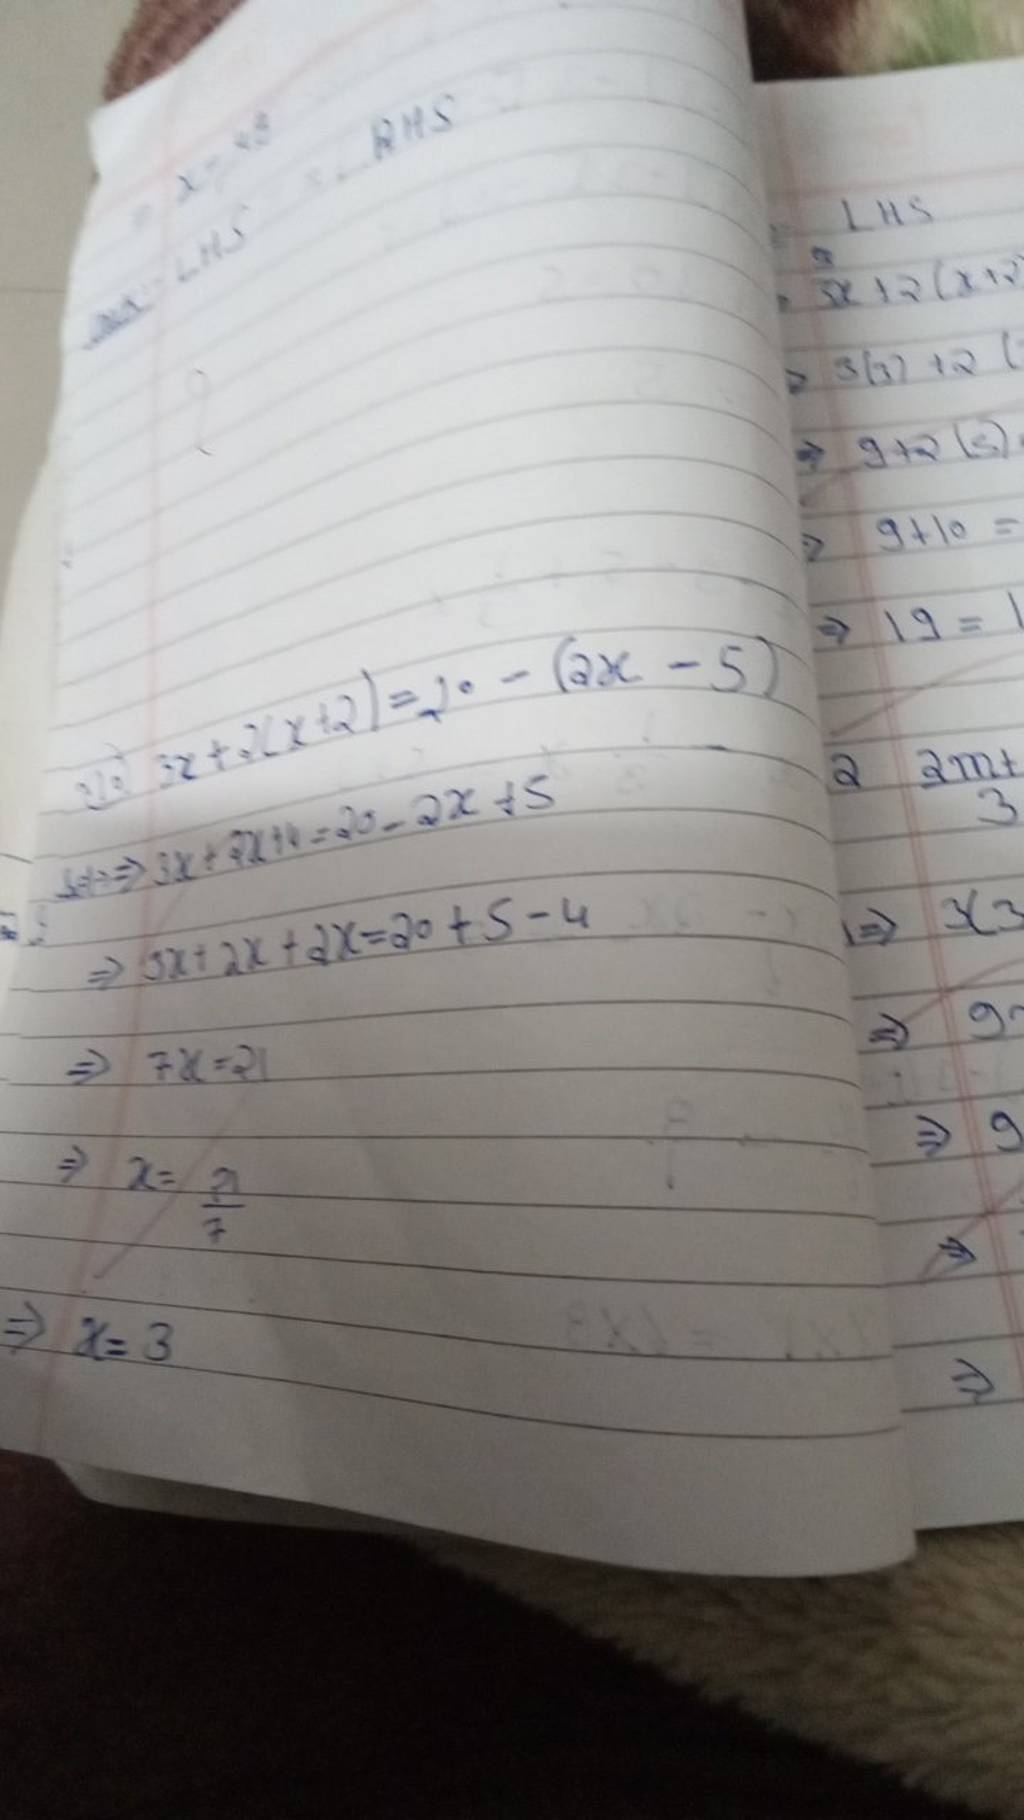 ⇒ x = 48
LHS RHS
3x + 2(x+2) = 20 - (2x - 5)
Soln ⇒ 3x + 2x + 4 = 20 - 2x + 5
⇒ 3x + 2x + 2x = 20 + 5 - 4
⇒ 7x = 21
⇒ x = 21
7
⇒ x = 3
LHS
3x + 2(x+2)
3(3) + 2(
⇒ 9 + 2(5)
⇒ 9 + 10 =
⇒ 19 = 1
2 2m+
3
⇒ 3(3
⇒ 9
⇒ 9
⇒
⇒